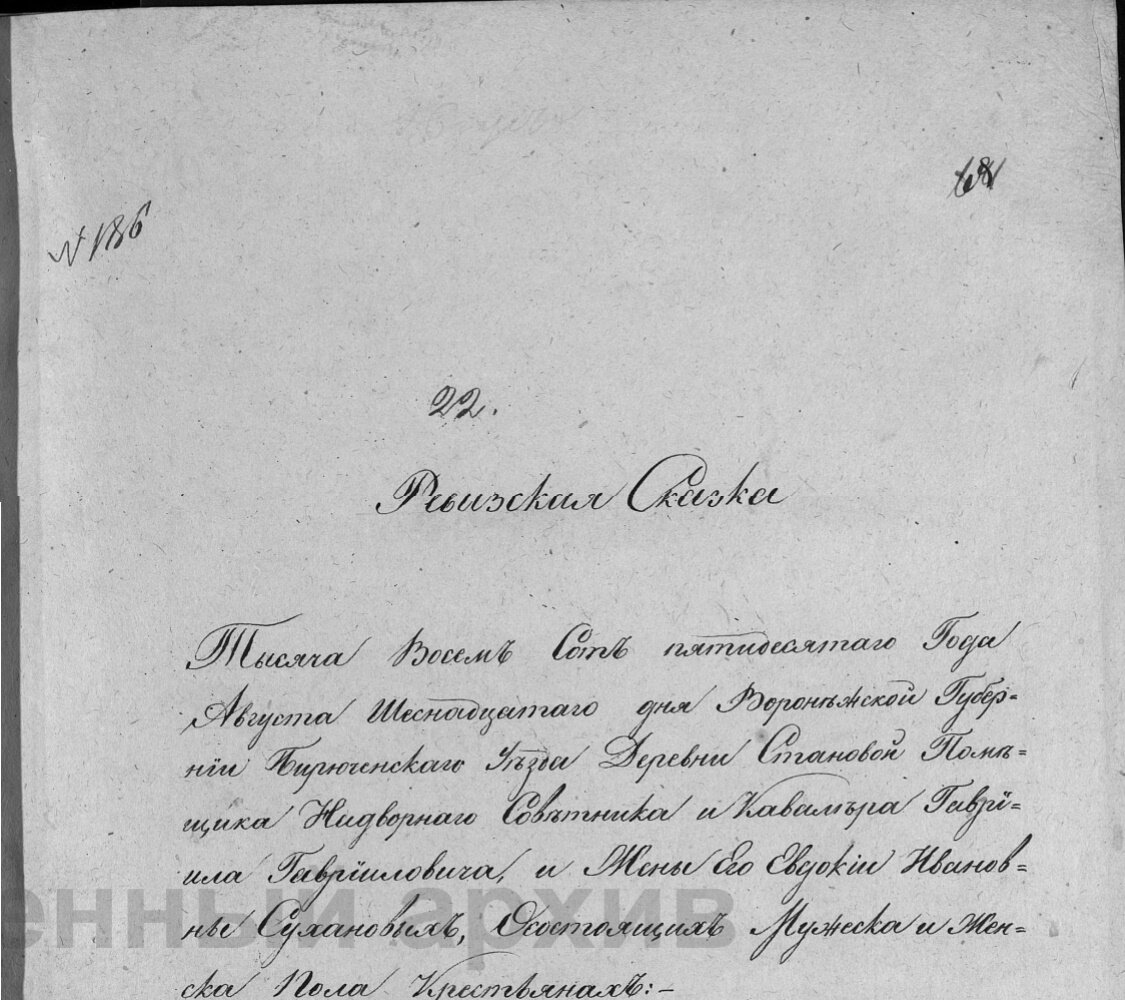 68
N 186
22.
Ревизская Сказка
Тысяча Восемъ Сотъ пятидесятаго Года
Августа Шеснадцатаго дня Воронѣжской Губер=
нiи Бирюченскаго Уѣзда Деревни Становой Помѣ=
щика Надворнаго Совѣтника и Кавалѣра Гаврi=
ила Гаврiиловича, и Жены Его Евдокiи Иванов=
ны Сухановыхъ, О состоящихъ Мужеска и Жен=
ска Пола Крестьянахъ:-
енный архив